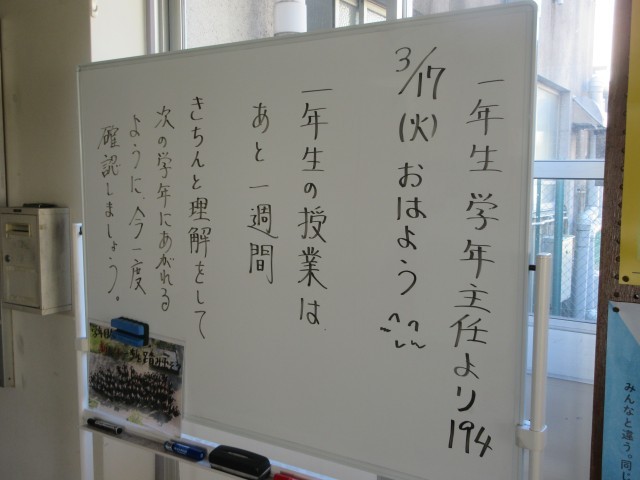 一年生 学年主任より 194
3/17(火) おはよう
一年生の授業は
あと一週間
きちんと理解をして
次の学年にあがれる
ように、今一度
確認しましょう。
みんなと違う。同じ